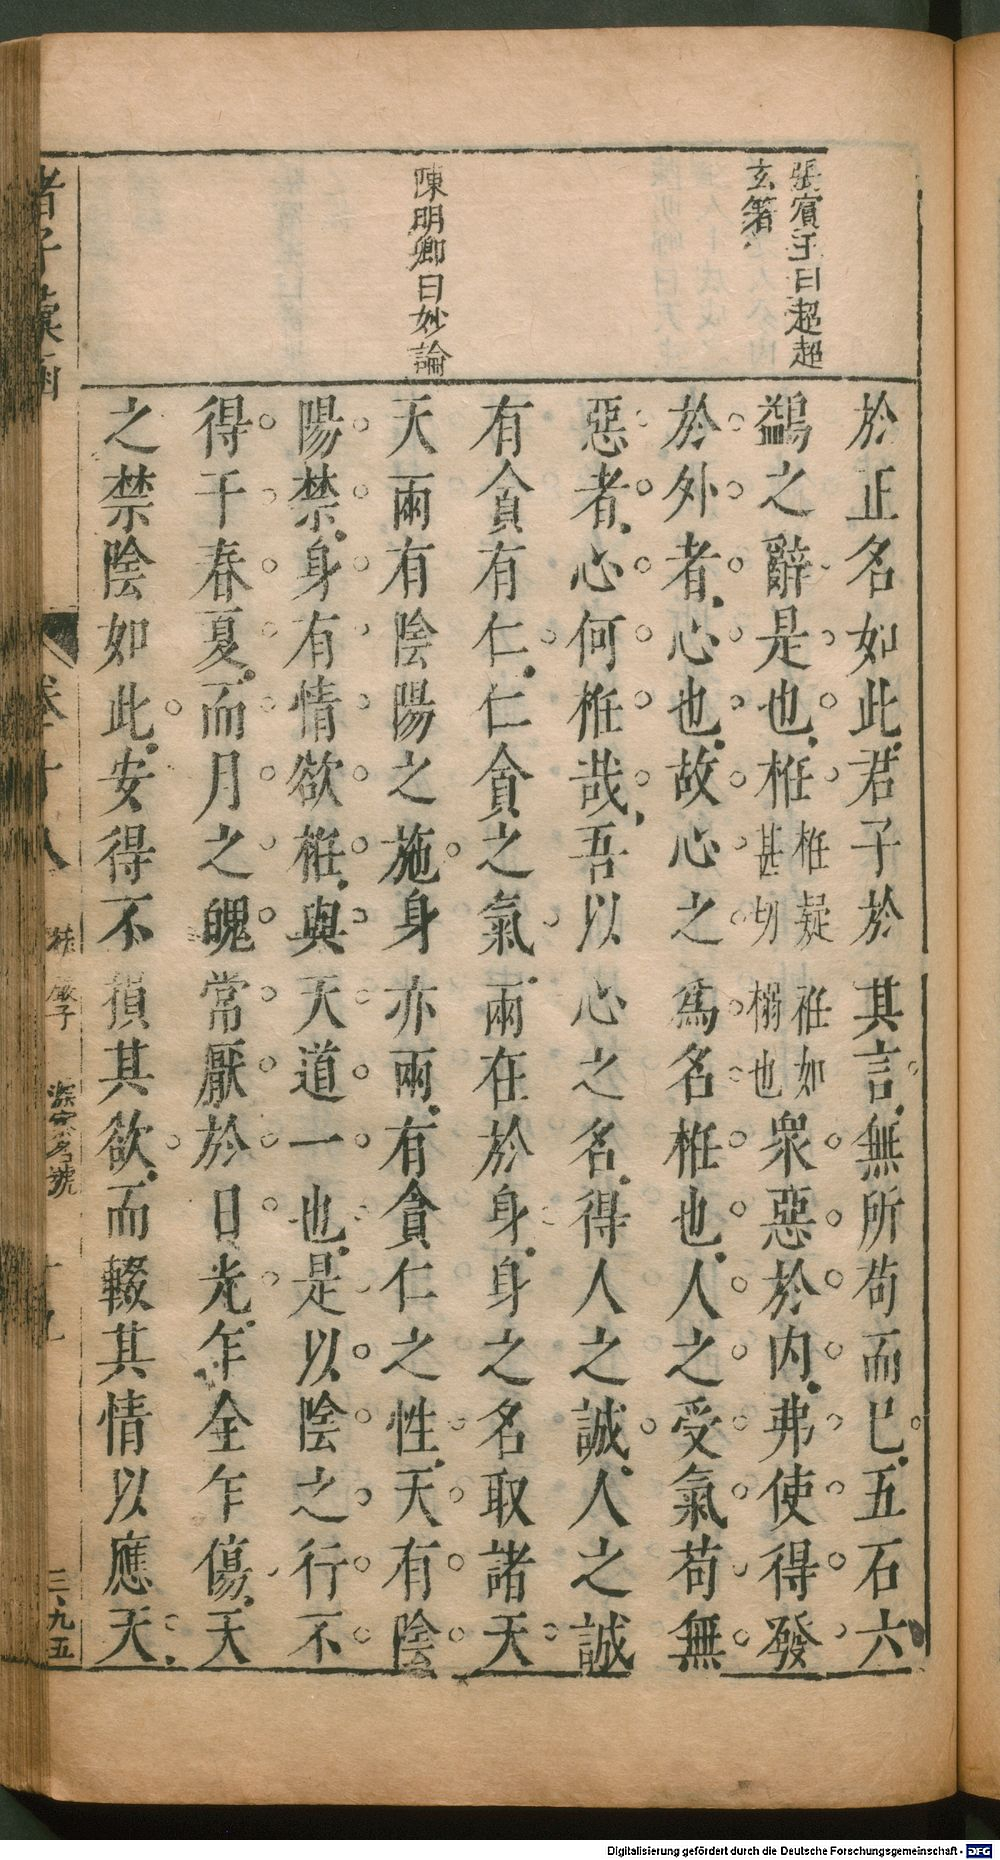 張賓王曰超超
玄箸
陳明卿曰妙論
於正名如此君子於其言無所苟而已五石六
鷁之辭是也桩桩疑甚切桩如榻也衆惡於内弗使得發
於外者心也故心之爲名桩也人之受氣苟無
惡者心何桩哉吾以心之名得人之誠人之誠
有貪有仁仁貪之氣兩在於身身之名取諸天
天兩有陰陽之施身亦兩有貪仁之性天有陰
陽禁身有情欲桩與天道一也是以陰之行不
得干春夏而月之魄常厭於日光乍全乍傷天
之禁陰如此安得不損其欲而輟其情以應天
諸子彙函
卷十八
三、九五
Digitalisierung gefördert durch die Deutsche Forschungsgemeinschaft - DFG